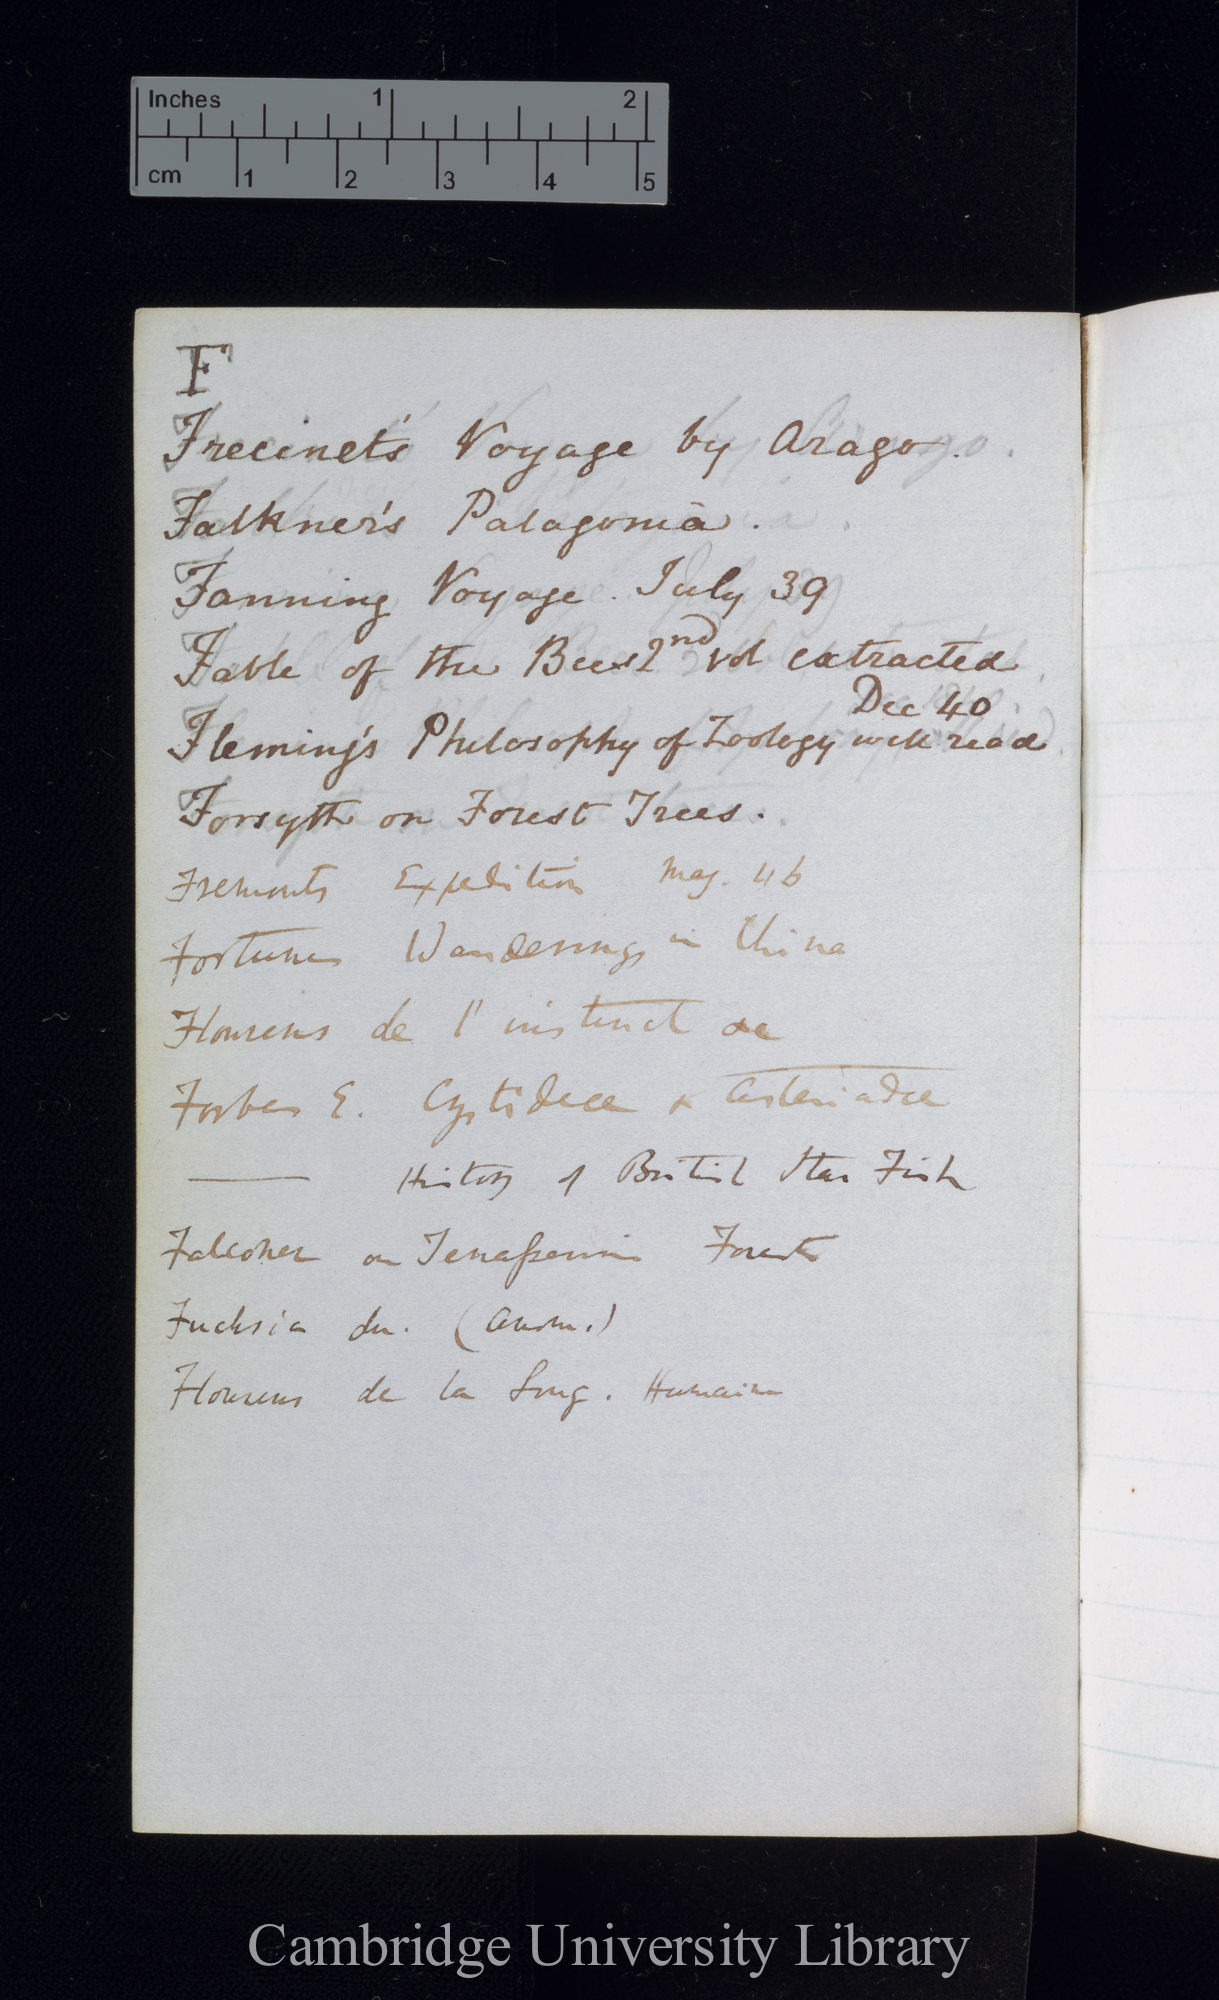 Inches 1 2
cm 1 2 3 4 5
F
Frecinet's Voyage by Arago.
Falkner's Patagonia.
Fanning Voyage. July 39
Fable of the Bees 2nd vol extracted
Dec 40
Fleming's Philosophy of Zoology well read
Forsyth on Forest Trees.
Fremonts Expedition May. 46
Fortunes Wanderings in China
Flourens de l'instinct &c
Forbes E. Cystideae & Asteriadae
——— History of British Star Fish
Falconer on Tenasserim Forests
Fuchsia du. (Anom.)
Flourens de la Long. Humaine
Cambridge University Library